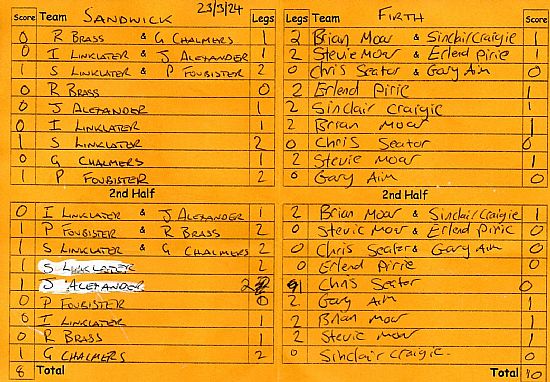 Score Team SANDWICK 23/3/24 Legs Legs Team FIRTH Score
0 R BRASS & G CHALMERS 1 2 Brian Moar & Sinclair Craigie 1
0 I LINKLATER & J ALEXANDER 1 2 Stevie Moar & Erlend Pirie 1
1 S LINKLATER & P FOUBISTER 2 0 Chris Seator & Gary Aim 0
0 R BRASS 0 2 Erlend Pirie 1
0 J ALEXANDER 1 2 Sinclair Craigie 1
0 I LINKLATER 1 2 Brian Moar 1
1 S LINKLATER 2 0 Chris Seator 0
0 G CHALMERS 1 2 Stevie Moar 1
1 P FOUBISTER 2 0 Gary Aim 0
2nd Half 2nd Half
0 I LINKLATER & J ALEXANDER 1 2 Brian Moar & Sinclair Craigie 1
1 P FOUBISTER & R BRASS 2 0 Stevie Moar & Erlend Pirie 0
1 S LINKLATER & G CHALMERS 2 0 Chris Seator & Gary Aim 0
1 S LINKLATER 2 0 Erlend Pirie 0
1 J ALEXANDER 2 1 Chris Seator 0
0 P FOUBISTER 0 2 Gary Aim 1
0 I LINKLATER 1 2 Brian Moar 1
0 R BRASS 1 2 Stevie Moar 1
1 G CHALMERS 2 0 Sinclair Craigie. 0
8 Total Total 10